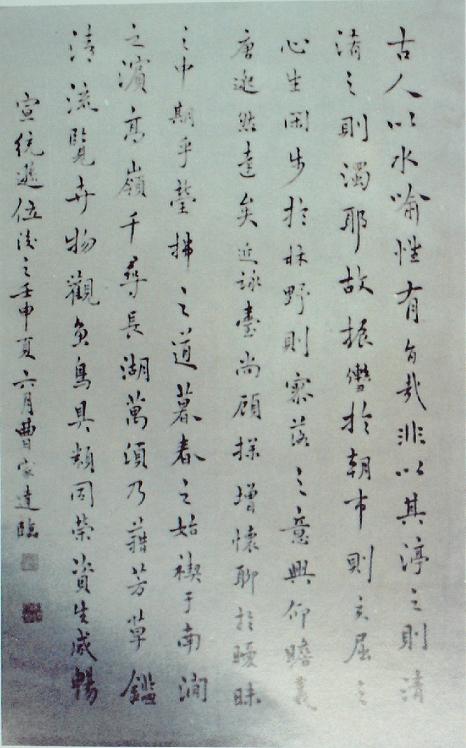 古人以水喻性有旨哉非以其渟之則清
淆之則濁耶故振轡於朝市則充屈之
心生閑步於林野則寥落之意興仰瞻羲
唐邈然遠矣近詠臺尚顧探增懷聊於曖昧
之中期乎瑩拂之道暮春之始禊于南澗
之濱高嶺千尋長湖萬頃乃藉芳草鑑
清流覽卉物觀魚鳥具類同榮資生咸暢
宣統遜位後之壬申夏六月曹家達臨